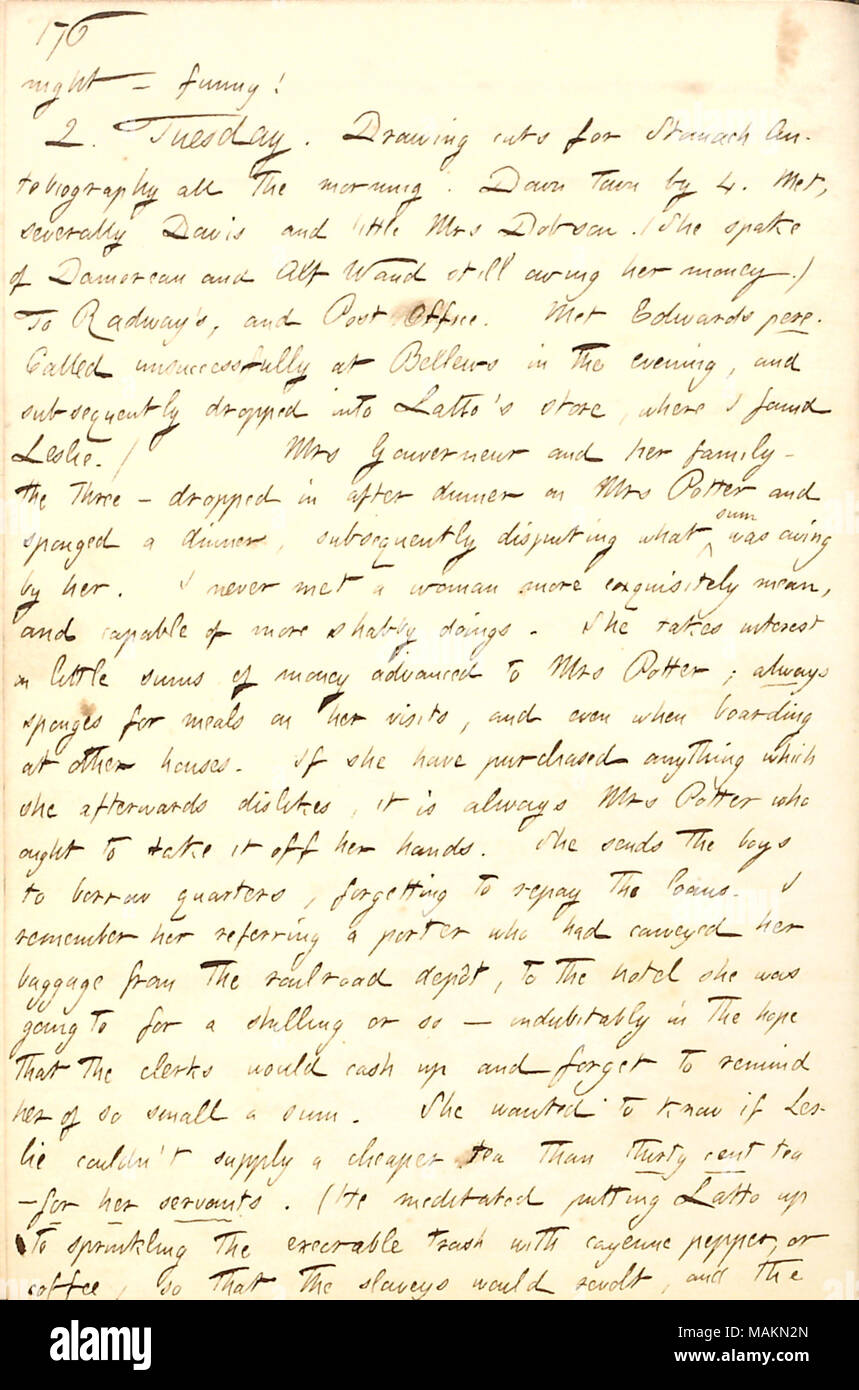 176
night — funny!
2. Tuesday. Drawing cuts for Stomach Au-
tobiography all the morning. Down town by 4. Met,
severally Davis and little Mrs Dobson. (She spake
of Damoreau and Alf Waud still owing her money.)
To Radway's, and Post Office. Met Edwards pere.
Called unsuccessfully at Bellews in the evening, and
subsequently dropped into Latto's store, where I found
Leslie. / Mrs Gouverneur and her family —
the three — dropped in after dinner on Mrs Potter and
sponged a dinner, subsequently disputing what sum was owing
by her. I never met a woman more exquisitely mean,
and capable of more shabby doings. She takes interest
on little sums of money advanced to Mrs Potter; always
sponges for meals on her visits, and even when boarding
at other houses. If she have purchased anything which
she afterwards dislikes, it is always Mrs Potter who
ought to take it off her hands. She sends the boys
to borrow quarters, forgetting to repay the loans. I
remember her referring a porter who had conveyed her
baggage from the railroad depôt, to the hotel she was
going to for a shilling or so — indubitably in the hope
that the clerks would cash up and forget to remind
her of so small a sum. She wanted to know if Les-
lie couldn't supply a cheaper tea than thirty cent tea
— for her servants. (He meditated putting Latto up
to sprinkling the execrable trash with cayenne pepper, or
coffee, so that the slaveys would revolt, and the
alamy
Image ID: MAKN2N
www.alamy.com